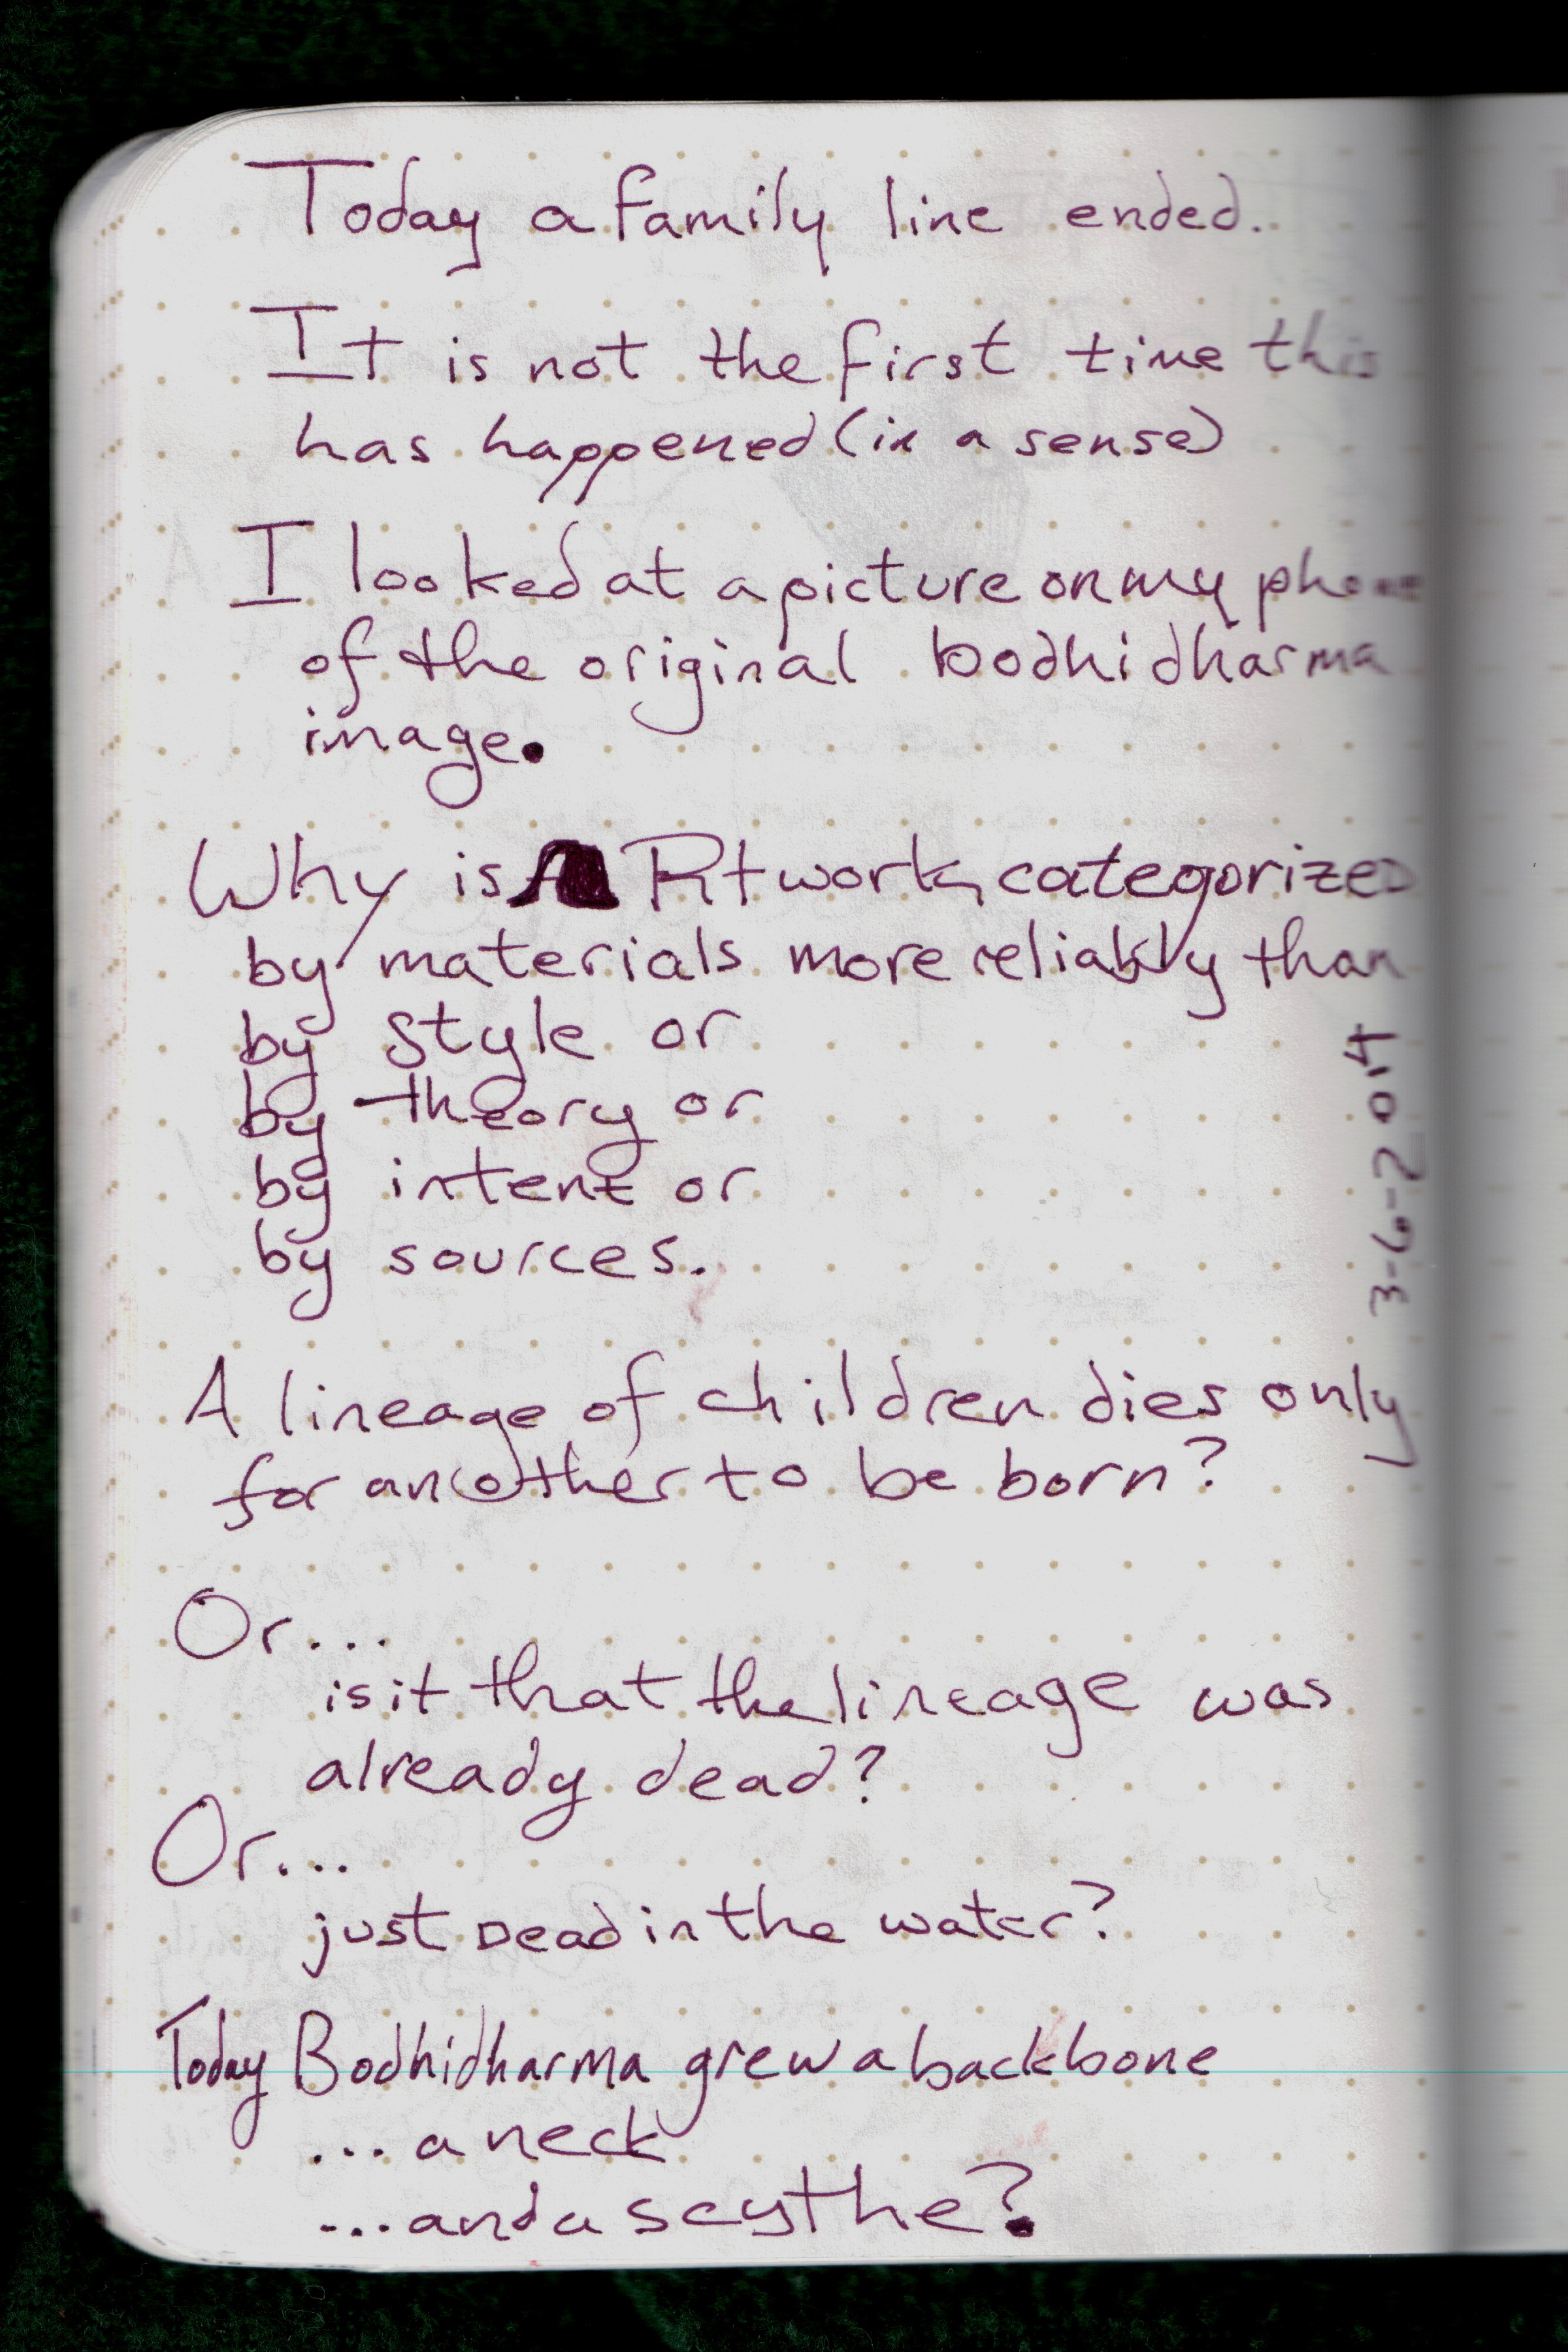 Today a family line ended.
It is not the first time this
has happened (in a sense)
I looked at a picture on my phone
of the original bodhidharma
image.
Why is Artwork categorized
by materials more reliably than
by style or
by theory or
by intent or
by sources.
3-6-2014
A lineage of children dies only
for another to be born?
Or...
is it that the lineage was
already dead?
Or...
just Dead in the water?
Today Bodhidharma grew a backbone
...a neck
...and a scythe?